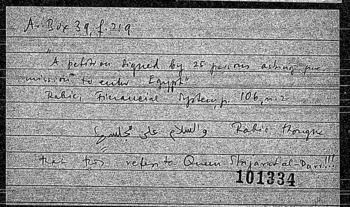 A. Box 39, f. 219
"A petition signed by 25 persons asking per
mission" to enter Egypt"
Rabie, Financial System, p. 106, n. 2
والسلام على Rabie thought
that this refers to Queen Shajarat al-Durr!!!
101334